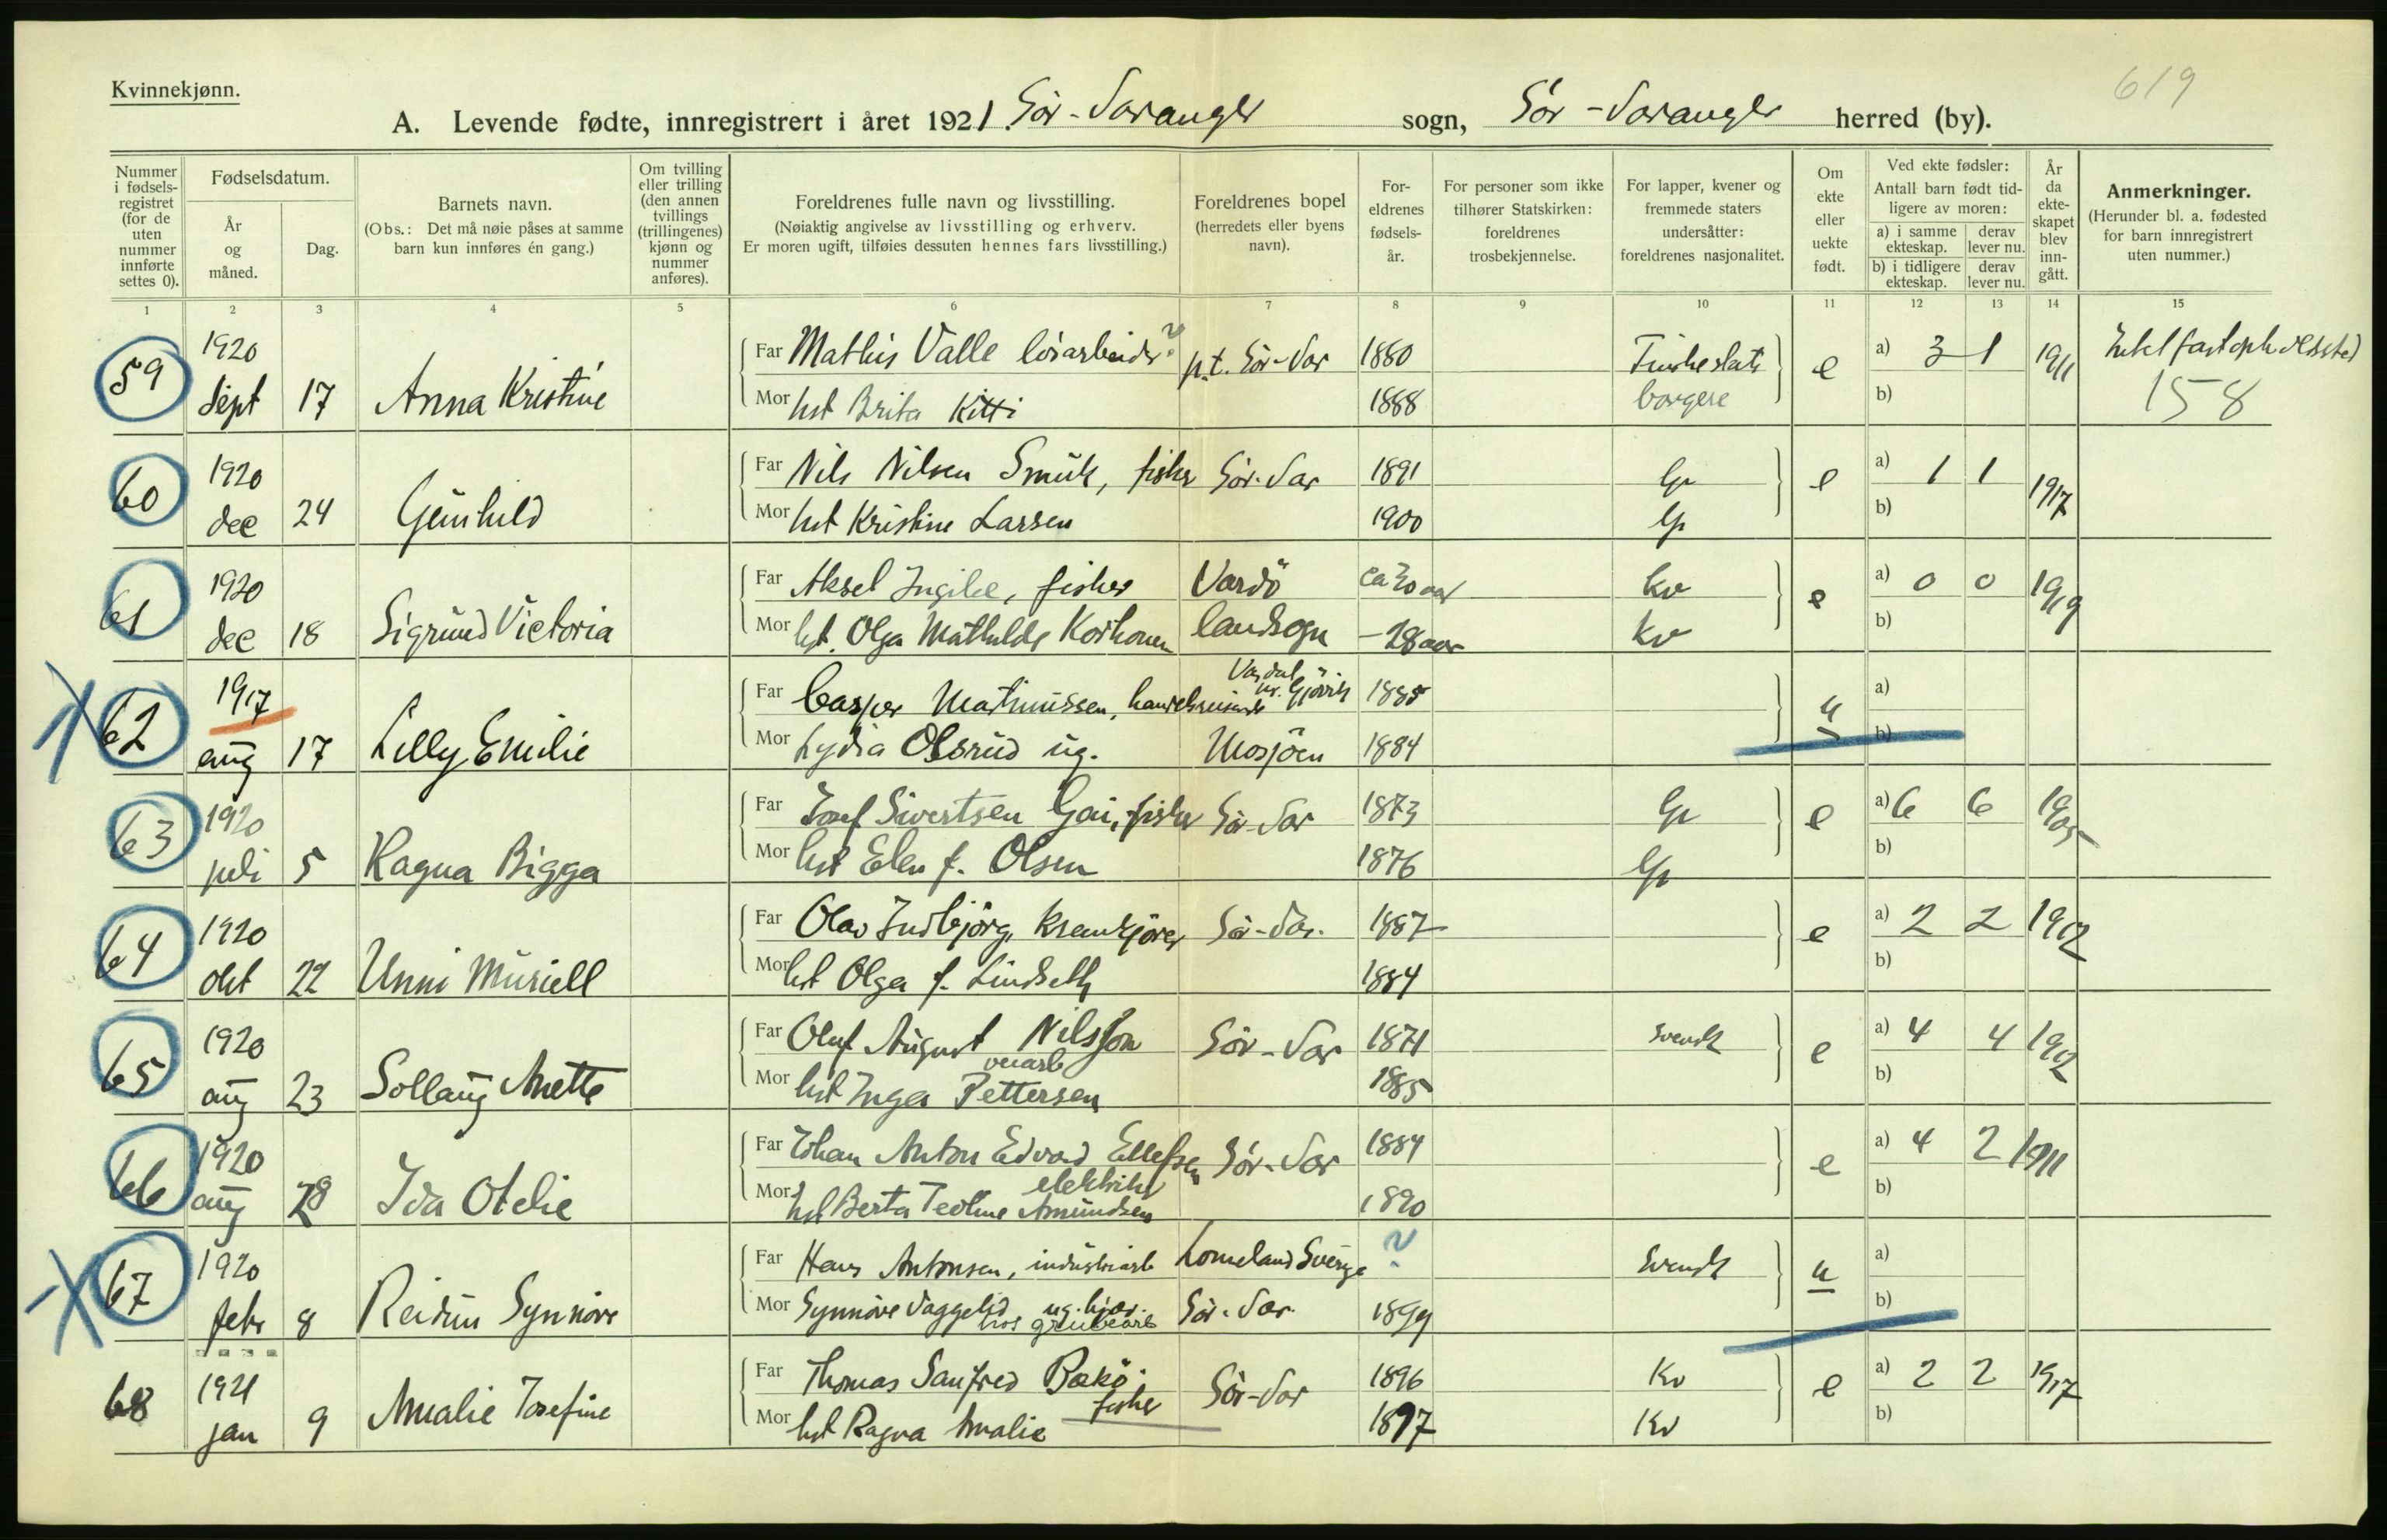 619
Kvinnekjønn.
A. Levende fødte, innregistrert i året 1921. Sör-Varanger sogn, Sör-Varanger herred (by).
Nummer i fødsels-registret (for de uten nummer innførte settes 0).
Fødselsdatum.
År og måned.
Dag.
Barnets navn.
(Obs.: Det må nøie påses at samme barn kun innføres én gang.)
Om tvilling eller trilling (den annen tvillings (trillingenes) kjønn og nummer anføres).
Foreldrenes fulle navn og livsstilling.
(Nøiaktig angivelse av livsstilling og erhverv.
Er moren ugift, tilføies dessuten hennes fars livsstilling.)
Foreldrenes bopel
(herredets eller byens navn).
For-eldrenes fødsels-år.
For personer som ikke tilhører Statskirken: foreldrenes trosbekjennelse.
For lapper, kvener og fremmede staters undersåtter: foreldrenes nasjonalitet.
Om ekte eller uekte født.
Ved ekte fødsler:
Antall barn født tid-ligere av moren:
a) i samme ekteskap.
derav lever nu.
b) i tidligere ekteskap.
derav lever nu.
År da ekte-skapet blev inn-gått.
Anmerkninger.
(Herunder bl. a. fødested for barn innregistrert uten nummer.)
1 2 3 4 5 6 7 8 9 10 11 12 13 14 15
59 1920 Sept 17 Anna Kristine
Far Mathis Valle lösarbeider ? p.t. Sör-Var 1880 Finske stats e a) 3 1 1911
Mor hst Brita Kitti 1888 borgere b) 158
60 1920 dec 24 Gunhild
Far Nils Nilsen Smuk, fisker Sör-Var 1891 lp e a) 1 1 1917
Mor hst Kristine Larsen 1900 lp b)
61 1920 dec 18 Sigrund Victoria
Far Aksel Ingilæ, fisker Vardö ca 30 aar kv e a) 0 0 1919
Mor hst. Olga Mathilde Korhonen landsogn - 28 aar kv b)
62 1917 aug 17 Lilly Emilie
Far Casper Martinussen, handelsreisende Vardal pr. Gjövik 1885 u a)
Mor Lydia Olsrud ug. Mosjöen 1884 b)
63 1920 juli 5 Ragna Bigga
Far Josef Sivertsen Gai, fisker Sör-Var 1873 lp e a) 6 6 1905
Mor hst Elen f. Olsen 1876 lp b)
64 1920 okt 22 Unni Muriell
Far Olav Indbjörg, krankjörer Sör-Var. 1887 e a) 2 2 1912
Mor hst Olga f. Lindseth 1884 b)
65 1920 aug 23 Sollaug Anette
Far Oluf August Nilsson Sör-Var 1871 svensk e a) 4 4 1912
veiarb
Mor hst Inga Pettersen 1885 b)
66 1920 aug 28 Ida Otelie
Far Johan Anton Edvard Ellefsen Sör-Var 1884 e a) 4 2 1911
elektriker
Mor hst Berta Teoline Amundsen 1890 b)
67 1920 febr 8 Reidun Synnöve
Far Hans Antonsen, industriarb Sverige ? Svensk u a)
Mor Synnöve Vaggelid, ug. hjæ. Sör-Var. 1899 b)
hos grubearb
68 1921 jan 9 Amalie Josefine
Far Thomas Sanfred Bækö. Sör-Var 1896 Kv e a) 2 2 1917
fisker
Mor hst Ragna Amalie 1897 Kv b)